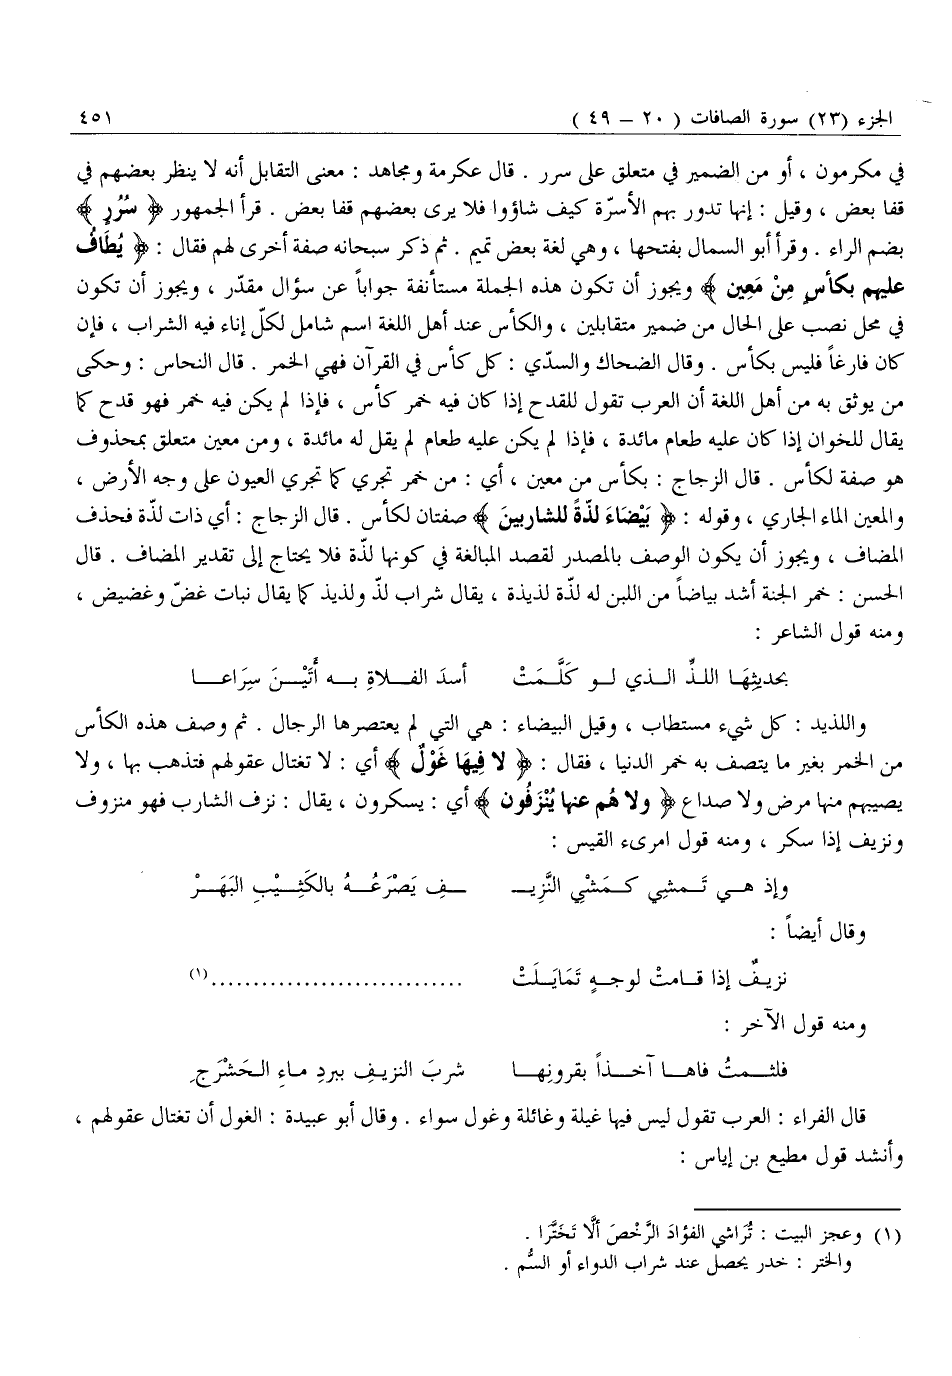 الجزء (٢٣) سورة الصافات ( ٢٠ – ٤٩ ) ٤٥١
في مكرمون ، أو من الضمير في متعلق على سرر . قال عكرمة ومجاهد : معنى التقابل أنه لا ينظر بعضهم في
قفا بعض ، وقيل : إنها تدور بهم الأسرّة كيف شاؤوا فلا يرى بعضهم قفا بعض . قرأ الجمهور ﴿ سُرُرٍ ﴾
بضم الراء . وقرأ أبو السمال بفتحها ، وهي لغة بعض تميم . ثم ذكر سبحانه صفة أخرى لهم فقال : ﴿ يُطَافُ
عليهم بكأسٍ مِنْ مَعِين ﴾ ويجوز أن تكون هذه الجملة مستأنفة جواباً عن سؤال مقدّر ، ويجوز أن تكون
في محل نصب على الحال من ضمير متقابلين ، والكأس عند أهل اللغة اسم شامل لكلّ إناء فيه الشراب ، فإن
كان فارغاً فليس بكأس . وقال الضحاك والسدّي : كل كأس في القرآن فهي الخمر . قال النحاس : وحكى
من يوثق به من أهل اللغة أن العرب تقول للقدح إذا كان فيه خمر كأس ، فإذا لم يكن فيه خمر فهو قدح كما
يقال للخوان إذا كان عليه طعام مائدة ، فإذا لم يكن عليه طعام لم يقل له مائدة ، ومن معين متعلق بمحذوف
هو صفة لكأس . قال الزجاج : بكأس من معين ، أي : من خمر تجري كما تجري العيون على وجه الأرض ،
والمعين الماء الجاري ، وقوله : ﴿ بَيْضَاءَ لذّةً للشاربينَ ﴾ صفتان لكأس . قال الزجاج : أي ذات لذّة فحذف
المضاف ، ويجوز أن يكون الوصف بالمصدر لقصد المبالغة في كونها لذّة فلا يحتاج إلى تقدير المضاف . قال
الحسن : خمر الجنة أشد بياضاً من اللبن له لذّة لذيذة ، يقال شراب لذّ ولذيذ كما يقال نبات غضّ وغضيض ،
ومنه قول الشاعر :
بحديثِهَا اللذِّ الذي لو كَلَّمَتْ أسدَ الفلاةِ به أُتَيْنَ سِرَاعا
واللذيد : كل شيء مستطاب ، وقيل البيضاء : هي التي لم يعتصرها الرجال . ثم وصف هذه الكأس
من الخمر بغير ما يتصف به خمر الدنيا ، فقال : ﴿ لا فِيهَا غَوْلٌ ﴾ أي : لا تغتال عقولهم فتذهب بها ، ولا
يصيبهم منها مرض ولا صداع ﴿ ولا هُم عنها يُنْزَفُون ﴾ أي : يسكرون ، يقال : نزف الشارب فهو منزوف
ونزيف إذا سكر ، ومنه قول امرىء القيس :
وإذ هي تَمشِي كمَشْيِ النَّزِيـ ـفِ يَصْرَعُهُ بالكَثِيْبِ البَهَرْ
وقال أيضاً :
نزيفٌ إذا قامتْ لوجهٍ تَمَايَلَتْ ..............................(١)
ومنه قول الآخر :
فلثمتُ فاها آخذاً بقرونِها شربَ النزيفِ ببردِ ماءِ الحَشْرَجِ
قال الفراء : العرب تقول ليس فيها غيلة وغائلة وغول سواء . وقال أبو عبيدة : الغول أن تغتال عقولهم ،
وأنشد قول مطيع بن إياس :
(١) وعجز البيت : تُرَاشي الفؤادَ الرَّخْصَ ألَّا تَخَتَّرَا .
والختر : خدر يحصل عند شراب الدواء أو السُّم .